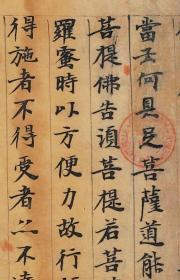 當云何具足菩薩道能
菩提佛告須菩提若菩
羅蜜時以方便力故行
得施者不得受者亦不